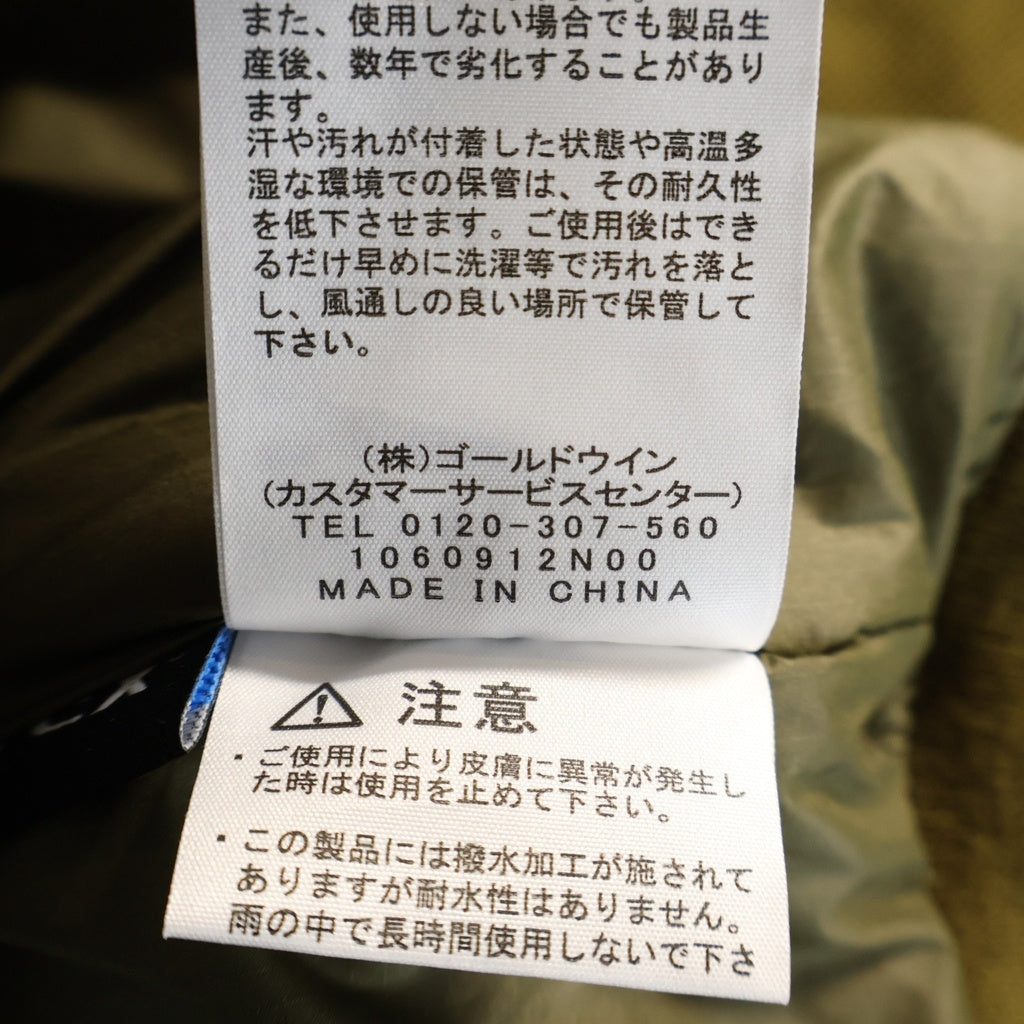 また、使用しない場合でも製品生
産後、数年で劣化することがあり
ます。
汗や汚れが付着した状態や高温多
湿な環境での保管は、その耐久性
を低下させます。ご使用後はでき
るだけ早めに洗濯等で汚れを落と
し、風通しの良い場所で保管して
下さい。
(株)ゴールドウイン
(カスタマーサービスセンター)
TEL 0120-307-560
1060912N00
MADE IN CHINA
注意
・ご使用により皮膚に異常が発生し
た時は使用を止めて下さい。
・この製品には撥水加工が施されて
ありますが耐水性はありません。
雨の中で長時間使用しないで下さ